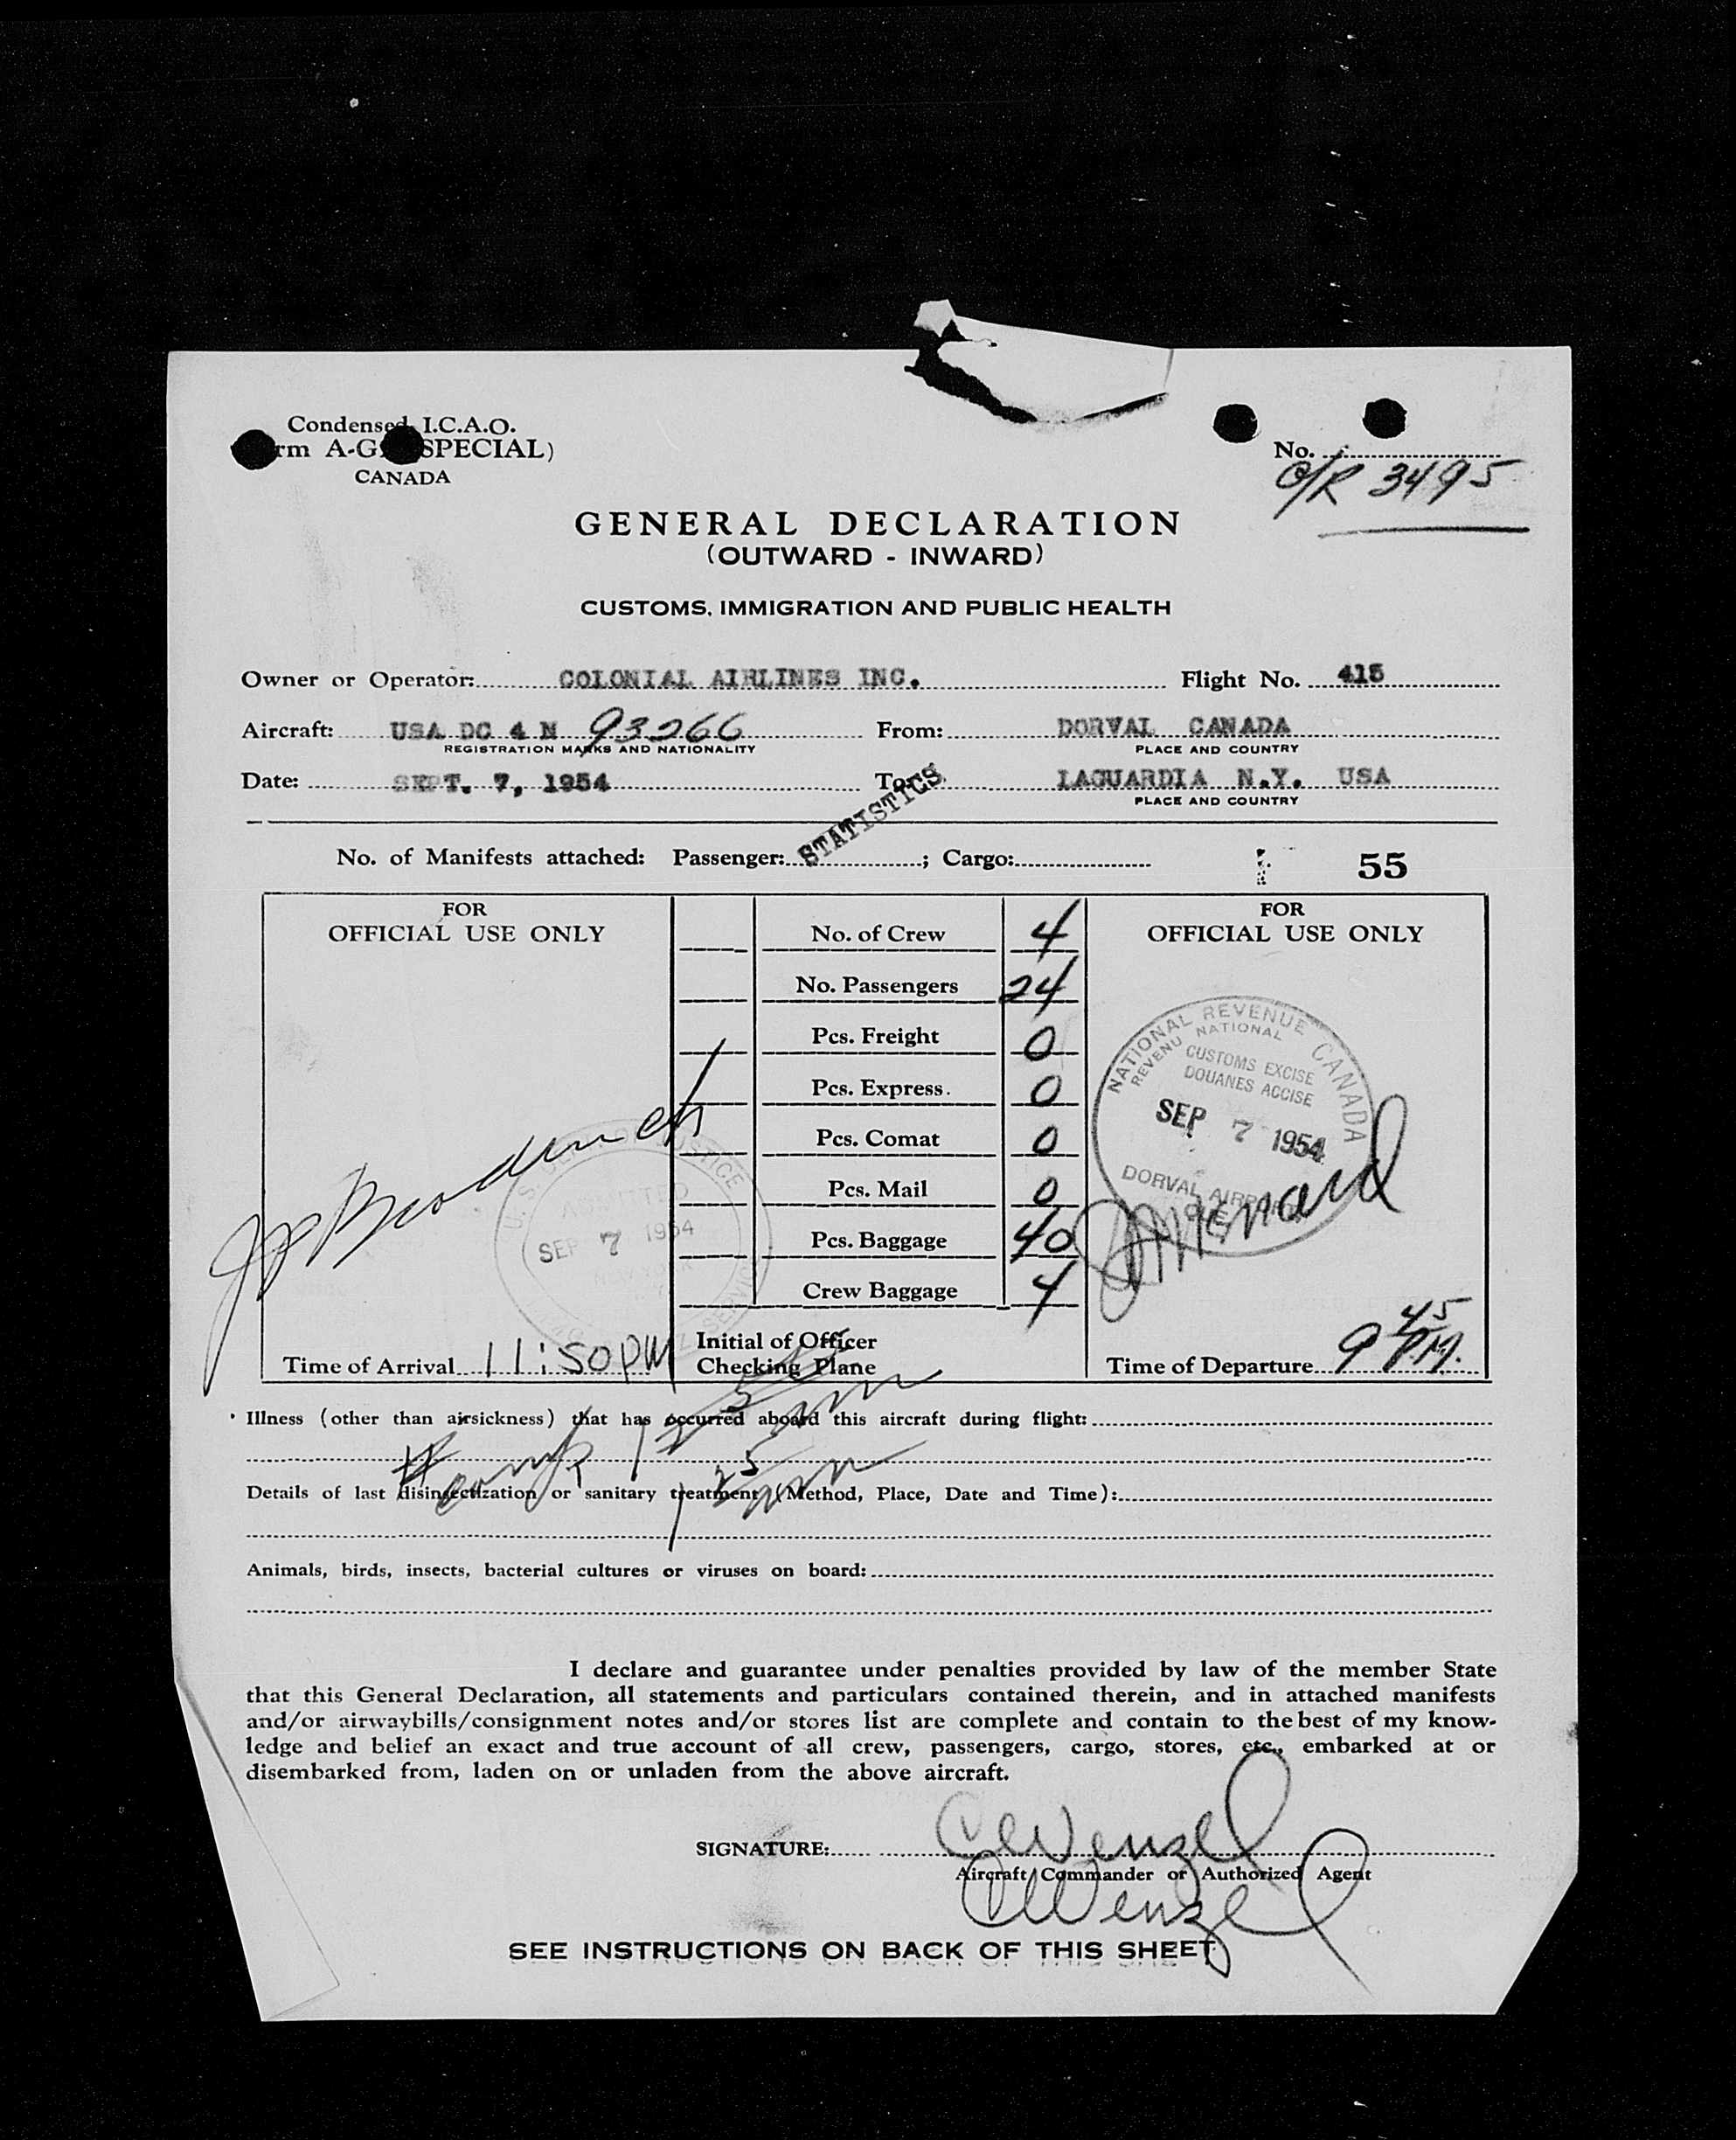 Condensed I.C.A.O.
rm A-G. SPECIAL)
CANADA
No.
O/R 3495
GENERAL DECLARATION
(OUTWARD - INWARD)
CUSTOMS, IMMIGRATION AND PUBLIC HEALTH
Owner or Operator: COLONIAL AIRLINES INC. Flight No. 415
Aircraft: USA DC 4 N 93266 From: DORVAL CANADA
REGISTRATION MARKS AND NATIONALITY PLACE AND COUNTRY
Date: SEPT. 7, 1954 To: LAGUARDIA N.Y. USA
PLACE AND COUNTRY
STATISTICS
No. of Manifests attached: Passenger: ; Cargo: 55
FOR
OFFICIAL USE ONLY
No. of Crew 4
No. Passengers 24
Pcs. Freight 0
Pcs. Express. 0
Pcs. Comat 0
Pcs. Mail 0
Pcs. Baggage 40
Crew Baggage 4
Initial of Officer
Checking Plane
SEP 7 1954
Time of Arrival 11:50 PM
FOR
OFFICIAL USE ONLY
NATIONAL REVENUE CANADA
REVENU NATIONAL
CUSTOMS EXCISE
DOUANES ACCISE
SEP 7 1954
DORVAL AIRPORT
Menard
Time of Departure 9 45 P.M.
Illness (other than airsickness) that has occurred aboard this aircraft during flight:
Details of last disinsectization or sanitary treatment (Method, Place, Date and Time):
Animals, birds, insects, bacterial cultures or viruses on board:
I declare and guarantee under penalties provided by law of the member State
that this General Declaration, all statements and particulars contained therein, and in attached manifests
and/or airwaybills/consignment notes and/or stores list are complete and contain to the best of my know-
ledge and belief an exact and true account of all crew, passengers, cargo, stores, etc., embarked at or
disembarked from, laden on or unladen from the above aircraft.
SIGNATURE: C Wenzel
Aircraft Commander or Authorized Agent
C Wenzel
SEE INSTRUCTIONS ON BACK OF THIS SHEET